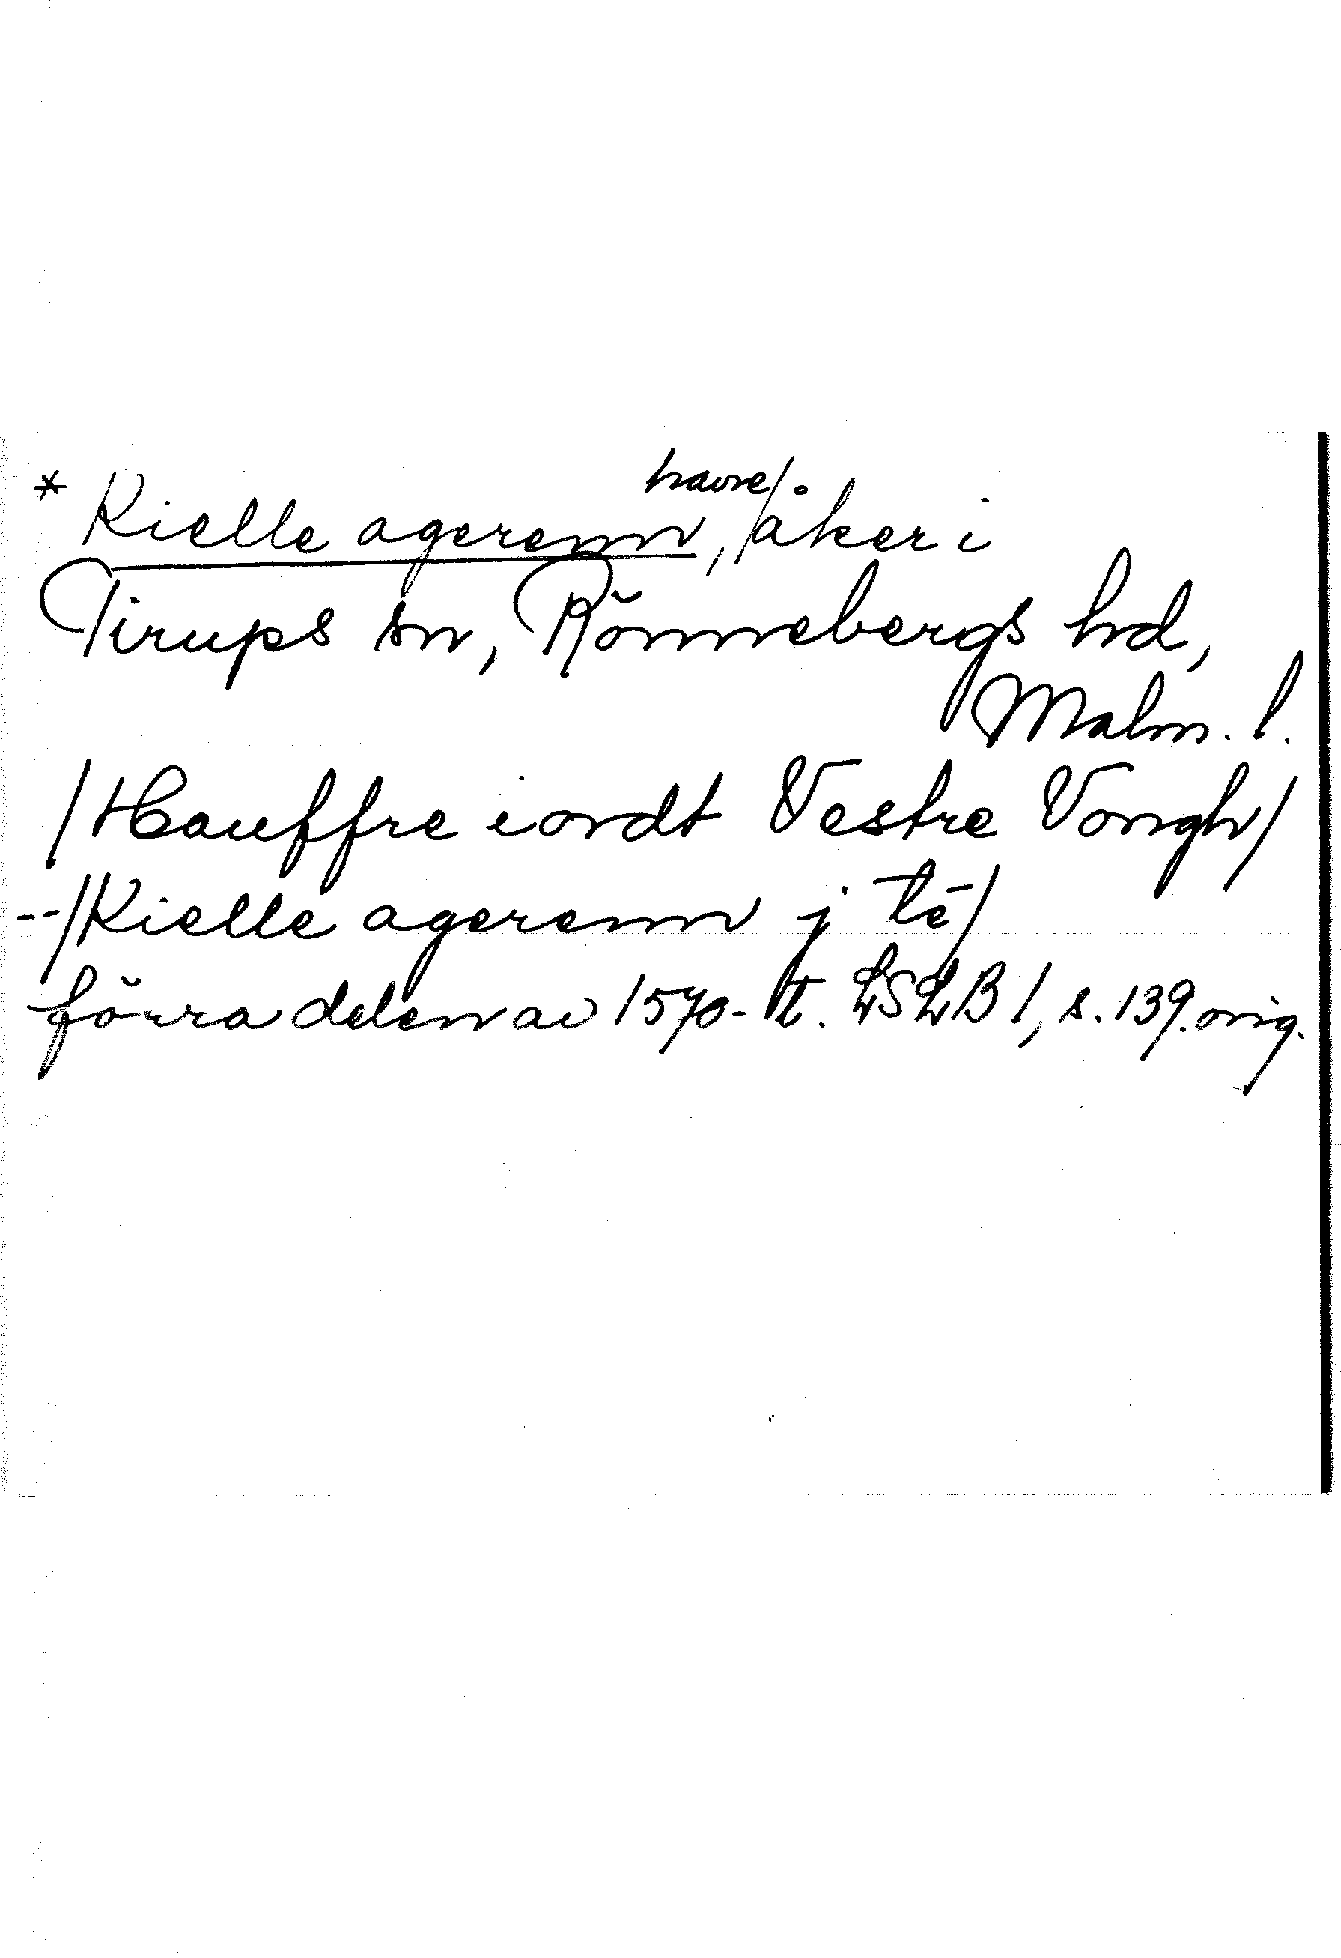 * Kielle agerenn, havre/åker i
Tirups sn, Rönnebergs hd,
Malm. l.
/Hauffre iordt Vestre Vongh/
--/Kielle agerenn j tē/
förra delen av 1570-t. LSLB 1, s. 139. orig.